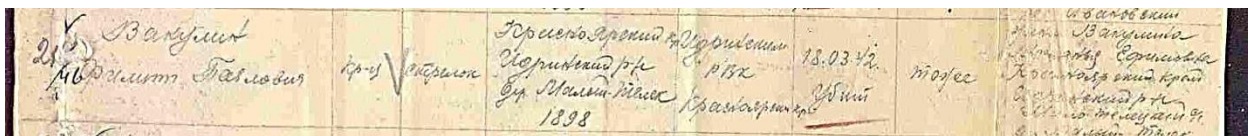 Вакулин
Филипп Павлович
кр-ц
стрелок
Красноярский кр.
Идринский р-н
дер. Малый-Телек
1898
Идринским
РВК
Красноярск. кр.
18.03.42
Убит
тоже
Вакулина
Ефимовна
Красноярский край
Идринский р-н